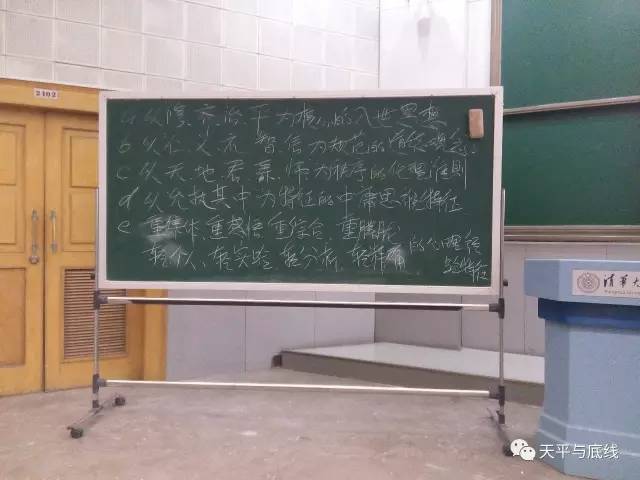 2102
a 以修、齐、治、平为核心的入世思想
b 以仁、义、礼、智、信为规范的道德观念.
c 以天、地、君、亲、师为秩序的伦理准则
d 以允执其中为特征的中庸思维特征
e 重集体、重整体、重综合、重朦胧
轻个人、轻实验、轻分析、轻精确
的心理
与特征
清华大
天平与底线